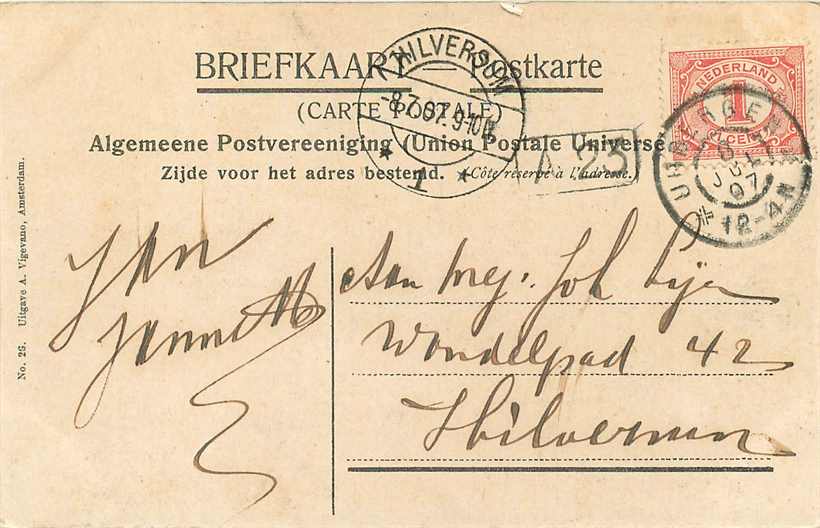 BRIEFKAART Postkarte
(CARTE POSTALE)
Algemeene Postvereeniging (Union Postale Universe
Zijde voor het adres bestemd. (Côte réservé à l'adresse.)
HILVERSUM
-8.7.07. 9-10
1
A 23
NEDERLAND
1
CENT
JUL
07
12-4N
No. 26. Uitgave A. Vigevano, Amsterdam.
Aan Mej. Joh
Wandelpad 42
Hilversum